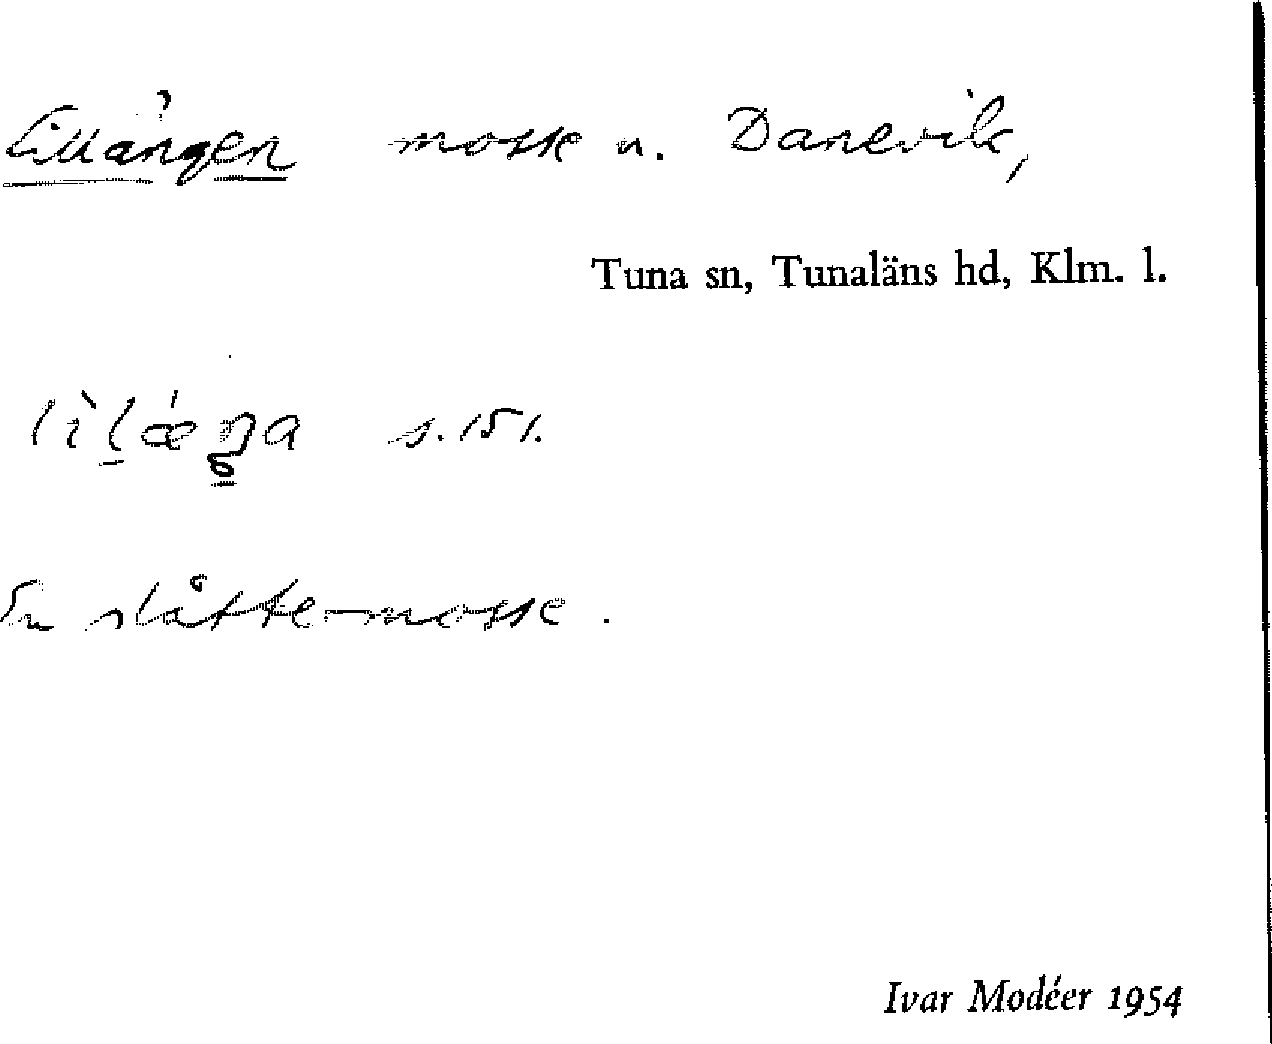 Lillängen mosse u. Danevik,
Tuna sn, Tunaläns hd, Klm. l.
lìlǽŋa s. 151.
En slåttermosse.
Ivar Modéer 1954